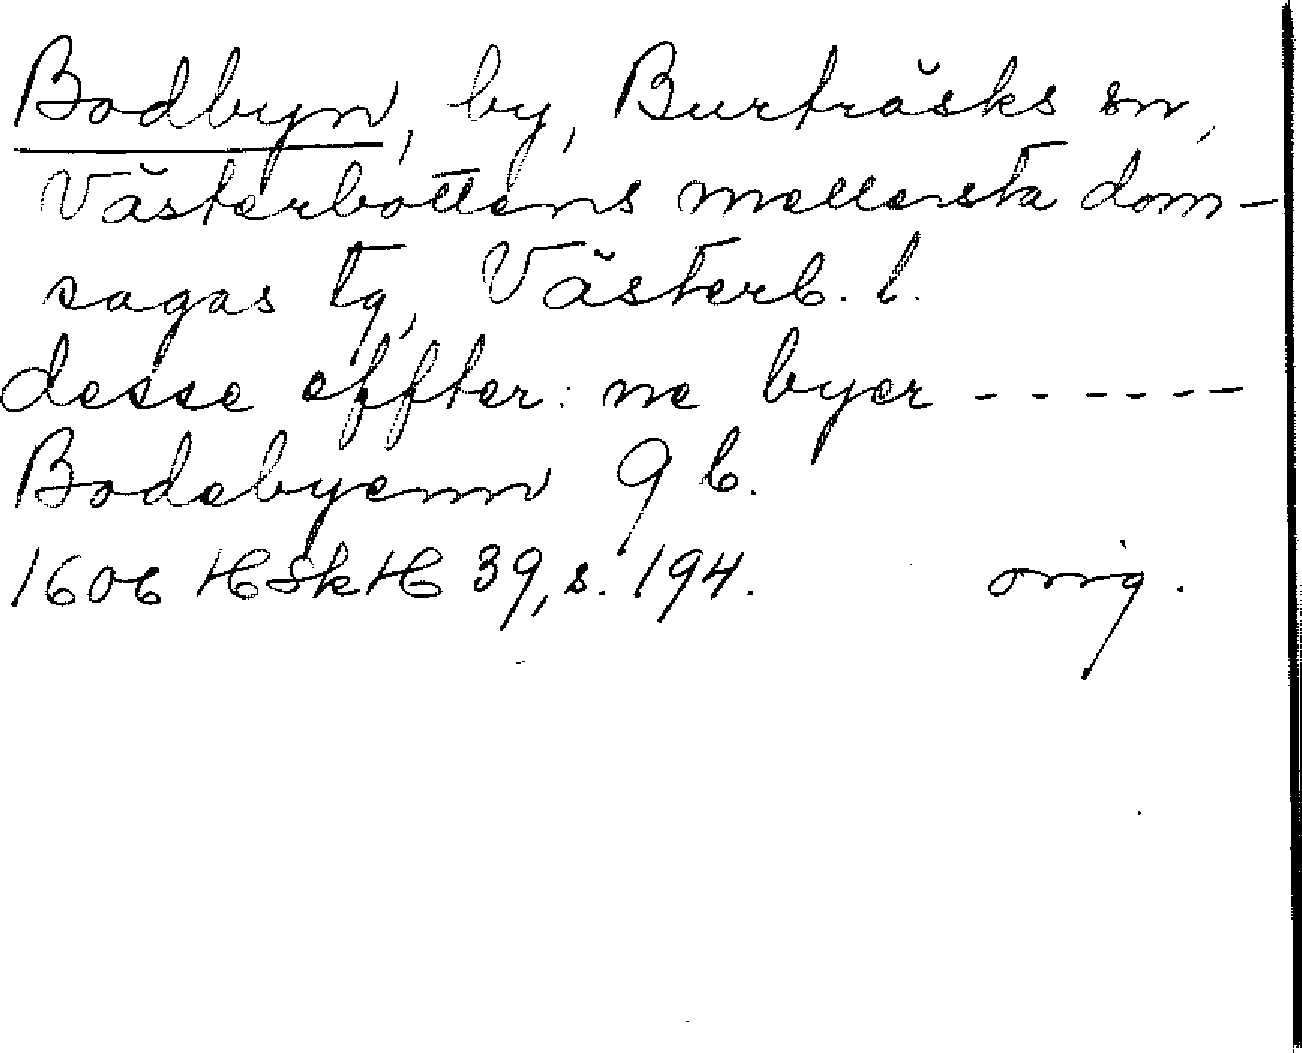 Bodbyn, by, Burträsks sn,
Västerbottens mellersta dom-
sagas tg, Västerb. l.
desse effter: ne byer ------
Bodebyenn 9 b.
1606 HSkH 39, s. 194. orig.